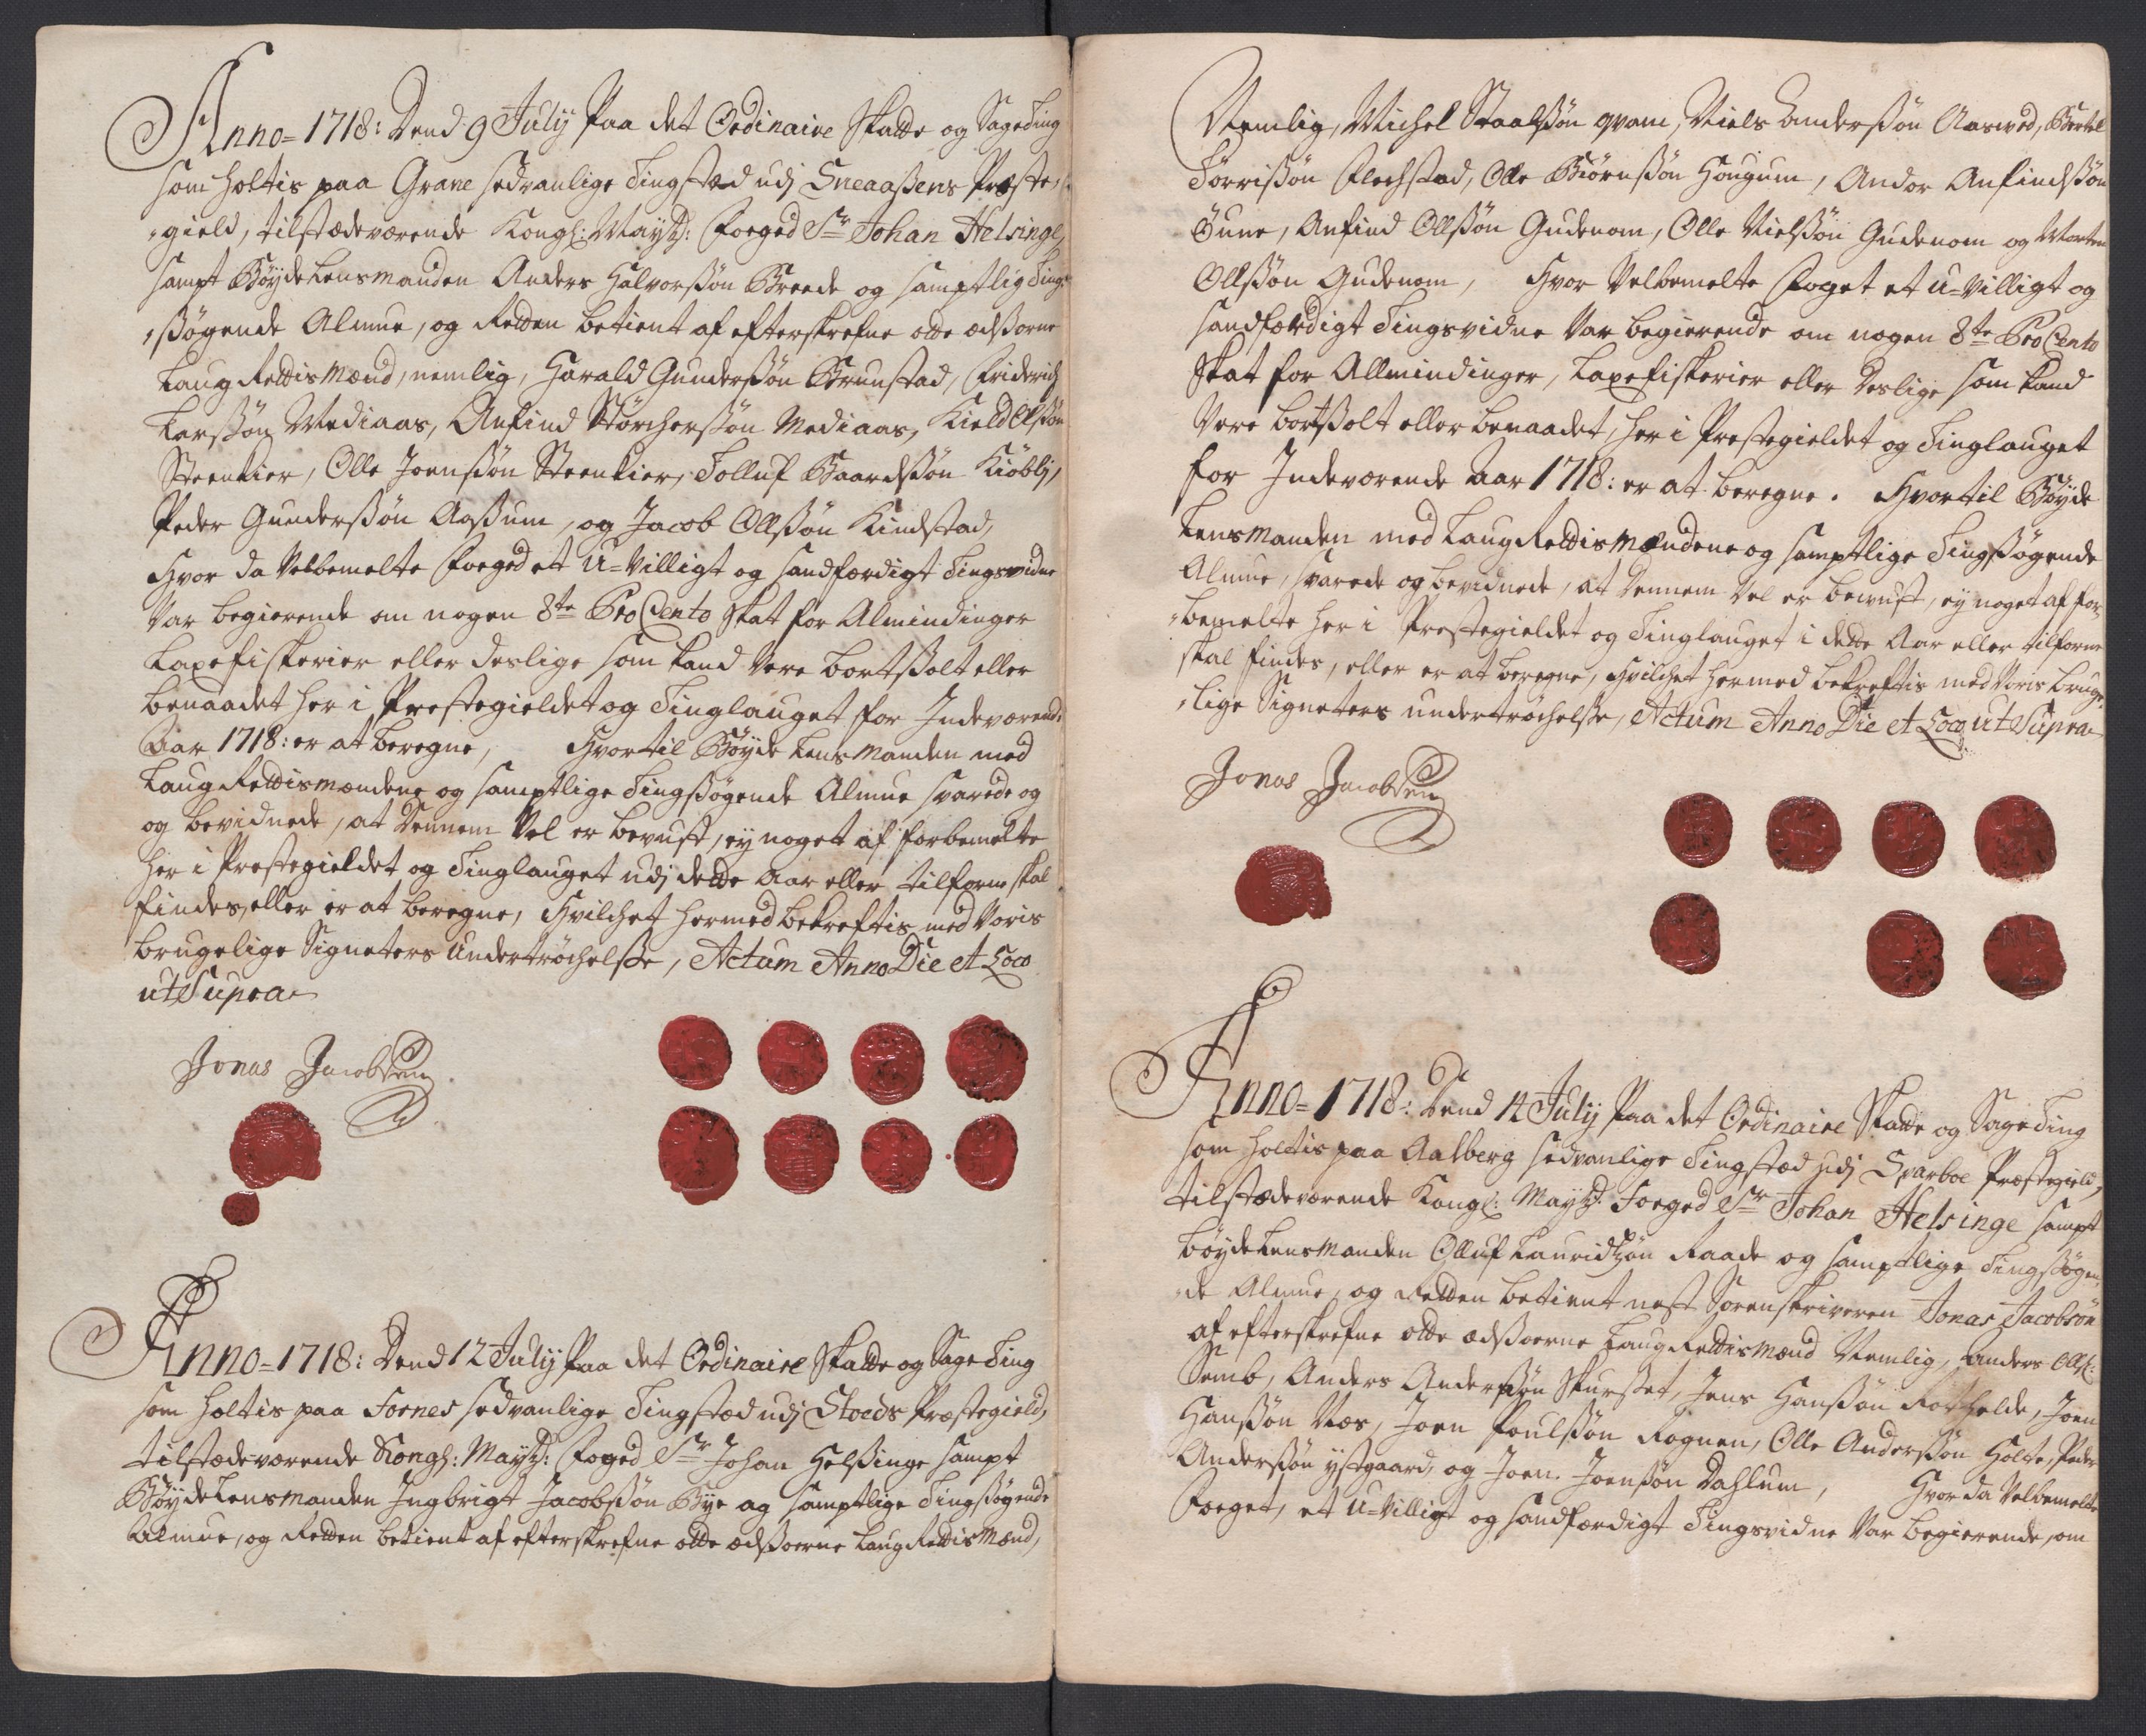 Anno= 1718: Dend 9 July Paa det Ordinaire Skatte og Sageting
som holtis paa Grane sedvanlige Tingstæd udj Sneaaßens Præste,,
,,gield, tilstædeværende Kongl: Mayts: Foeged Sr Johan Helsinge,
sampt Bøydelensmanden Anders Halvorßøn Breede og samptlig Ting,,
,,ßøgende Almue, og Retten betient af efterskrefne otte ædßorne
LaugRettismænd, nemlig, Harald Gunderßøn Brunstad, Friderich
Larßøn Mediaas, Anfind Størcherßøn Mediaas, Kield Olßøn
Steenkier, Olle Joenßøn Steenkier, Tolluf Baardßøn Kiøblj,
Peder Gunderßøn Aaßum, og Jacob Ollßøn Kindstad,
Hvor da Velbemelte Foeged et U=Villigt og sandfærdigt Tingsvidne
Var begierende om nogen 8te ProCento Skat for Almindinger
Laxefiskerier eller deslige som kand Vere bortßolt eller
benaadet her i Prestegieldet og Tinglauget for Indeværende
Aar 1718: er at beregne, Hvortil Bøydelensmanden med
LaugRettismændene og samptlige Tingßøgende Almue svarede og
og bevidnede, at dennem Vel er bevust, ey noget af forbemelte
her i Prestegieldet og Tinglauget udj dette Aar eller tilforne skal
findes, eller er at beregne, Hvilchet hermed bekreftis med Voris
brugelige Signeters Undertrøchelße, Actum Anno Die et Loco
ut Supra
Jonas Jacobsen
Anno= 1718: Dend 12 July Paa det Ordinaire Skatte og Sage Ting
som holtis paa Fornes sedvanlige Tingstæd udj Stoeds Præstegield,
tilstædeværende Kongl: Mayts: Foged Sr Johan Helßinge sampt
Bøydelensmanden Ingbrigt Jacobßøn Bye og samptlige Tingßøgende
Almue, og Retten betient af efterskrefne otte ædßoerne LaugRettismænd,
Nemlig, Michel Staalßøn qvam, Niels Anderßøn Aasved, Bertel
Tørrißøn Flechstad, Olle Biørnßøn Hougum, Andor Anfindßøn
Øune, Anfind Ollßøn Gudenom, Olle Nielßøn Gudenom og Morten
Ollßøn Gudenom, Hvor Velbemelte Foget et U=Villigt og
sandfærdigt Tingsvidne Var begierende om nogen 8te ProCento
Skat for Allmindinger, Laxefiskerier eller deslige som kand
Vere bortßolt eller benaadet, her i Prestegieldet og Tinglauget
for Indeværende Aar 1718: er at beregne. Hvortil Bøyde
Lensmanden med LaugRettismændene og samptlige Tingßøgende
Almue, svarede og bevidnede, at dennem Vel er bevust, ey noget af for,,
,,bemelte her i Prestegieldet og Tinglauget i dette Aar eller tilforne
skal findes, eller er at beregne, Hvilchet hermed bekreftis med Voris bruge,,
,,lige Signeters undertrøchelße, Actum Anno Die et Loco ut Supra
Jonas Jacobsen
Anno= 1718: Dend 14 July Paa det Ordinaire Skatte og Sage Ting
som holtis paa Aalberg sedvanlige Tingstæd udj Sparboe Præstegield,
tilstædeværende Kongl: Mayts: Foeged Sr Johan Helsinge sampt
bøydelensmanden Olluf Lauridtzøn Raade og samptlige Tingßøgen,,
,,de Almue, og Retten betient nest Sorenskriveren Jonas Jacobsøn
af efterskrefne otte ædßoerne LaugRettismænd Nemlig, Anders Ollß:
Semb, Anders Anderßøn Skurßet, Jens Hanßøn Rothelde, Joen
Hanßøn Næs, Joen Poulßøn Rognen, Olle Anderßøn Holte, Peder
Anderßøn ystgaard, og Joen Joenßøn Dahlum, Hvor da Velbemelte
Foeget, et U=Villigt og sandfærdigt Tingsvidne Var begierende, om